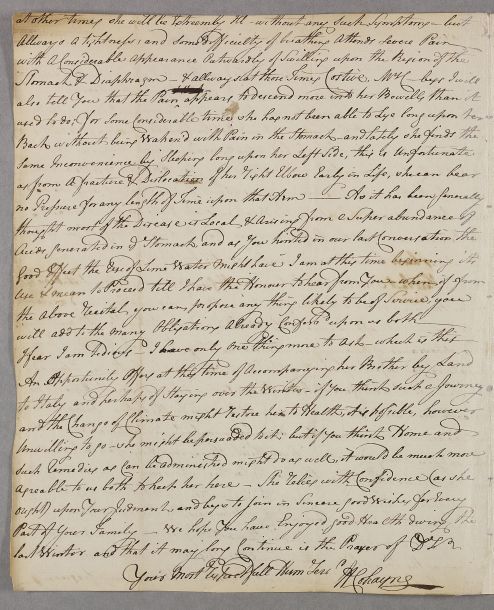 At other times she will be Extremely Ill - without any Such Symptoms - but
Allways A tightness, and Some difficulty of breathing Attends severe Pain
with A Considerable Appearance Outwardly of Swelling upon the Region of the
Stomach & Diaphragm - & allways at those Times Costive. Mrs C- begs I will
also tell You that the Pain appears to descend more into her Bowells than it
used to do, For Some Considerable time She has not been able to Lye long upon her
Back without being Waken'd with Pain in the Stomach - and lately she finds the
Same Inconvenience by Sleeping long upon her Left Side, this is Unfortunate
as from A fracture & Dislocation of her Right Elbow Early in Life, she can bear
no Pressure for any length of Time upon that Arm - As it has been generally
thought most of the Disease is Local & Arising from a Superabundance of
Acids generated in ye Stomach, and as You hinted in our last Conversation the
Good Effect the Use of Lime Water Might have I am at this time beginning its
Use & mean to Proceed till I have the Honour to hear from You, when if from
the Above Recital, you can propose any thing likely to be of Service, you
will add to the Many Obligations Already Conferr'd upon us both -
I fear I am tedious - I have only one thing more to Ask - which is this -
An Opportunity Offers at this time of Accompanying her Brother by Land
to Italy and perhaps of Staying over the Winter - if You think such a Journey
and the Change of Climate might restore her to Health, it is possible, however
Unwilling to go - she might be persuaded to it; but if You think Home and
Such Remedies as Can be Administred might do as well, it would be much more
Agreable to us both to keep her here - She Relies with Confidence (as she
ought) upon Your Judgment, and begs to Join in Sincere good Wishes for Every
Part of Your Family - We hope You have Enjoyed good Health during The
last Winter and that it may long Continue is the Prayer of Dr Sr
Your Most Respectfull Hum Servt
Cokayne